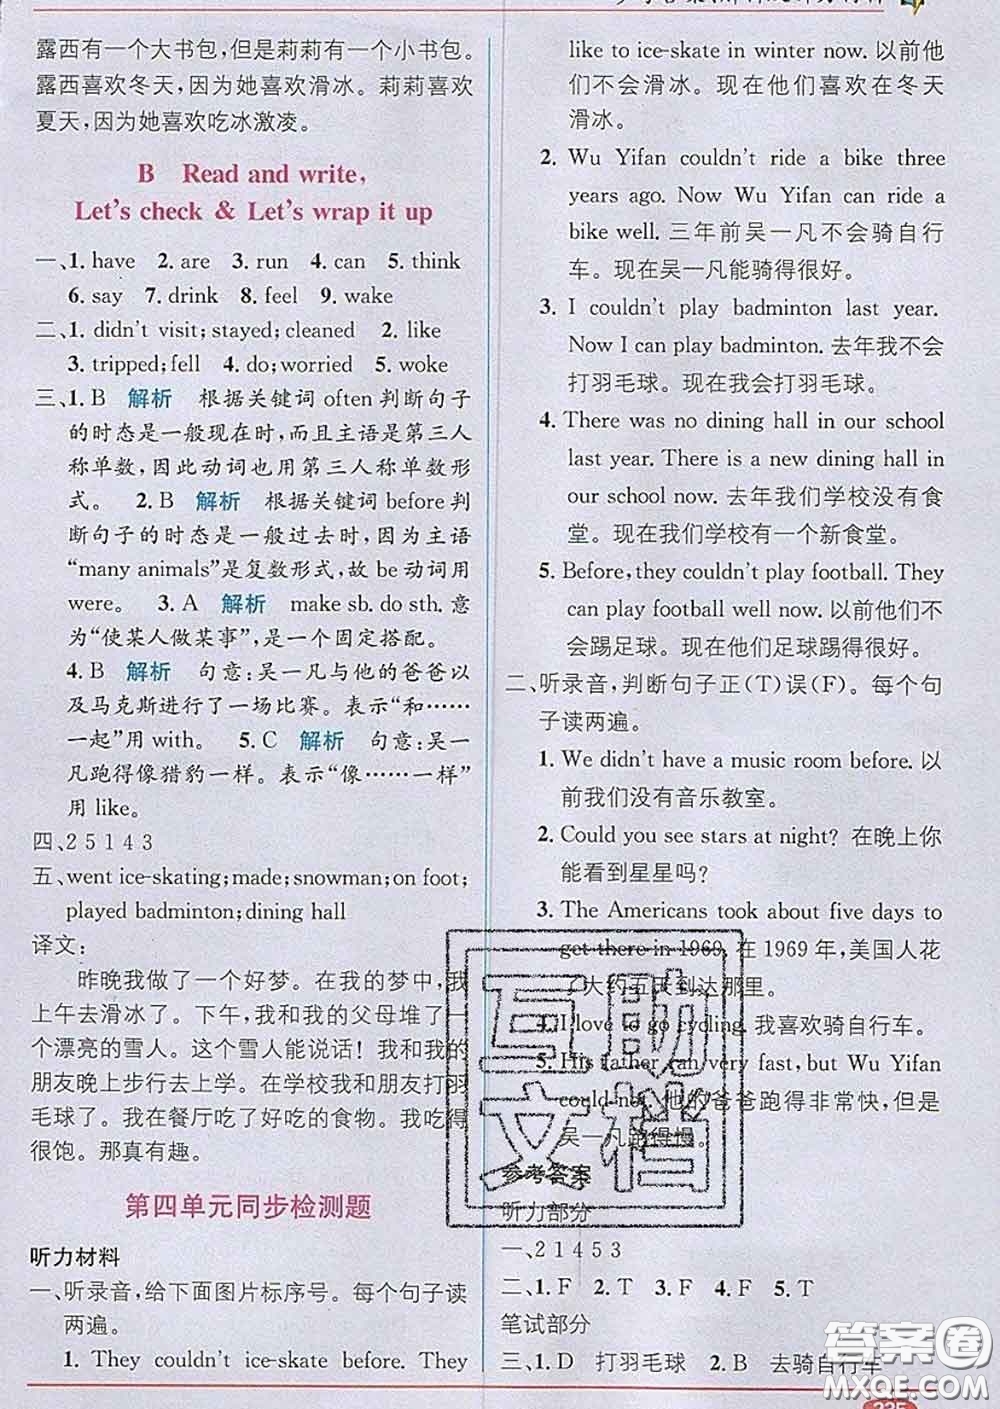 露西有一个大书包,但是莉莉有一个小书包。
露西喜欢冬天,因为她喜欢滑冰。莉莉喜欢
夏天,因为她喜欢吃冰激凌。
B Read and write,
Let's check & Let's wrap it up
一、1. have 2. are 3. run 4. can 5. think
6. say 7. drink 8. feel 9. wake
二、1. didn't visit;stayed;cleaned 2. like
3. tripped;fell 4. do;worried 5. woke
三、1. B 解析 根据关键词 often 判断句子
的时态是一般现在时,而且主语是第三人
称单数,因此动词也用第三人称单数形
式。 2. B 解析 根据关键词 before 判
断句子的时态是一般过去时,因为主语
“many animals”是复数形式,故 be 动词用
were。 3. A 解析 make sb. do sth. 意
为“使某人做某事”,是一个固定搭配。
4. B 解析 句意:吴一凡与他的爸爸以
及马克斯进行了一场比赛。表示“和……
一起”用 with。 5. C 解析 句意:吴一
凡跑得像猎豹一样。表示“像……一样”
用 like。
四、2 5 1 4 3
五、went ice-skating;made;snowman;on foot;
played badminton;dining hall
译文:
昨晚我做了一个好梦。在我的梦中,我
上午去滑冰了。下午,我和我的父母堆了一
个漂亮的雪人。这个雪人能说话!我和我的
朋友晚上步行去上学。在学校我和朋友打羽
毛球了。我在餐厅吃了好吃的食物。我吃得
很饱。那真有趣。
第四单元同步检测题
听力材料
一、听录音,给下面图片标序号。每个句子读
两遍。
1. They couldn't ice-skate before. They
like to ice-skate in winter now. 以前他
们不会滑冰。现在他们喜欢在冬天
滑冰。
2. Wu Yifan couldn't ride a bike three
years ago. Now Wu Yifan can ride a
bike well. 三年前吴一凡不会骑自行
车。现在吴一凡能骑得很好。
3. I couldn't play badminton last year.
Now I can play badminton. 去年我不会
打羽毛球。现在我会打羽毛球。
4. There was no dining hall in our school
last year. There is a new dining hall in
our school now. 去年我们学校没有食
堂。现在我们学校有一个新食堂。
5. Before, they couldn't play football. They
can play football well now. 以前他们不
会踢足球。现在他们足球踢得很好。
二、听录音,判断句子正(T)误(F)。每个句
子读两遍。
1. We didn't have a music room before. 以
前我们没有音乐教室。
2. Could you see stars at night? 在晚上你
能看到星星吗?
3. The Americans took about five days to
get there in 1969. 在 1969 年,美国人花
了大约五天到达那里。
4. I love to go cycling. 我喜欢骑自行车。
5. His father ran very fast, but Wu Yifan
could not. 他的爸爸跑得非常快,但是
吴一凡跑得慢。
参考答案
听力部分
一、2 1 4 5 3
二、1. F 2. T 3. F 4. F 5. T
笔试部分
三、1. D 打羽毛球 2. B 去骑自行车
225
互助
文档
答案圈
MXQE.COM